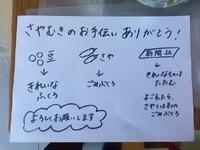 さやむきのお手伝いありがとう！
豆
きれいな
ふくろ
さや
ごみぶくろ
新聞紙
きれいなものは
たたむ
よごれたら、
さやといっしょの
ごみぶくろ
よろしくお願いします